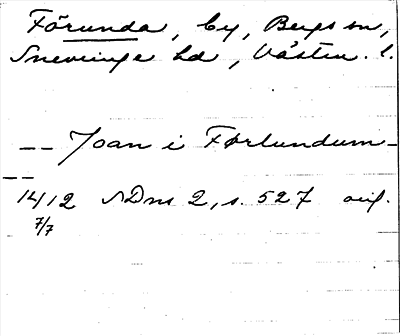 Förunda, by, Bergs sn,
Snevringe hd, Västm. l.
-- Joan i Førlundum -
--
14/12 SDns 2, s. 527 orig.
7/7